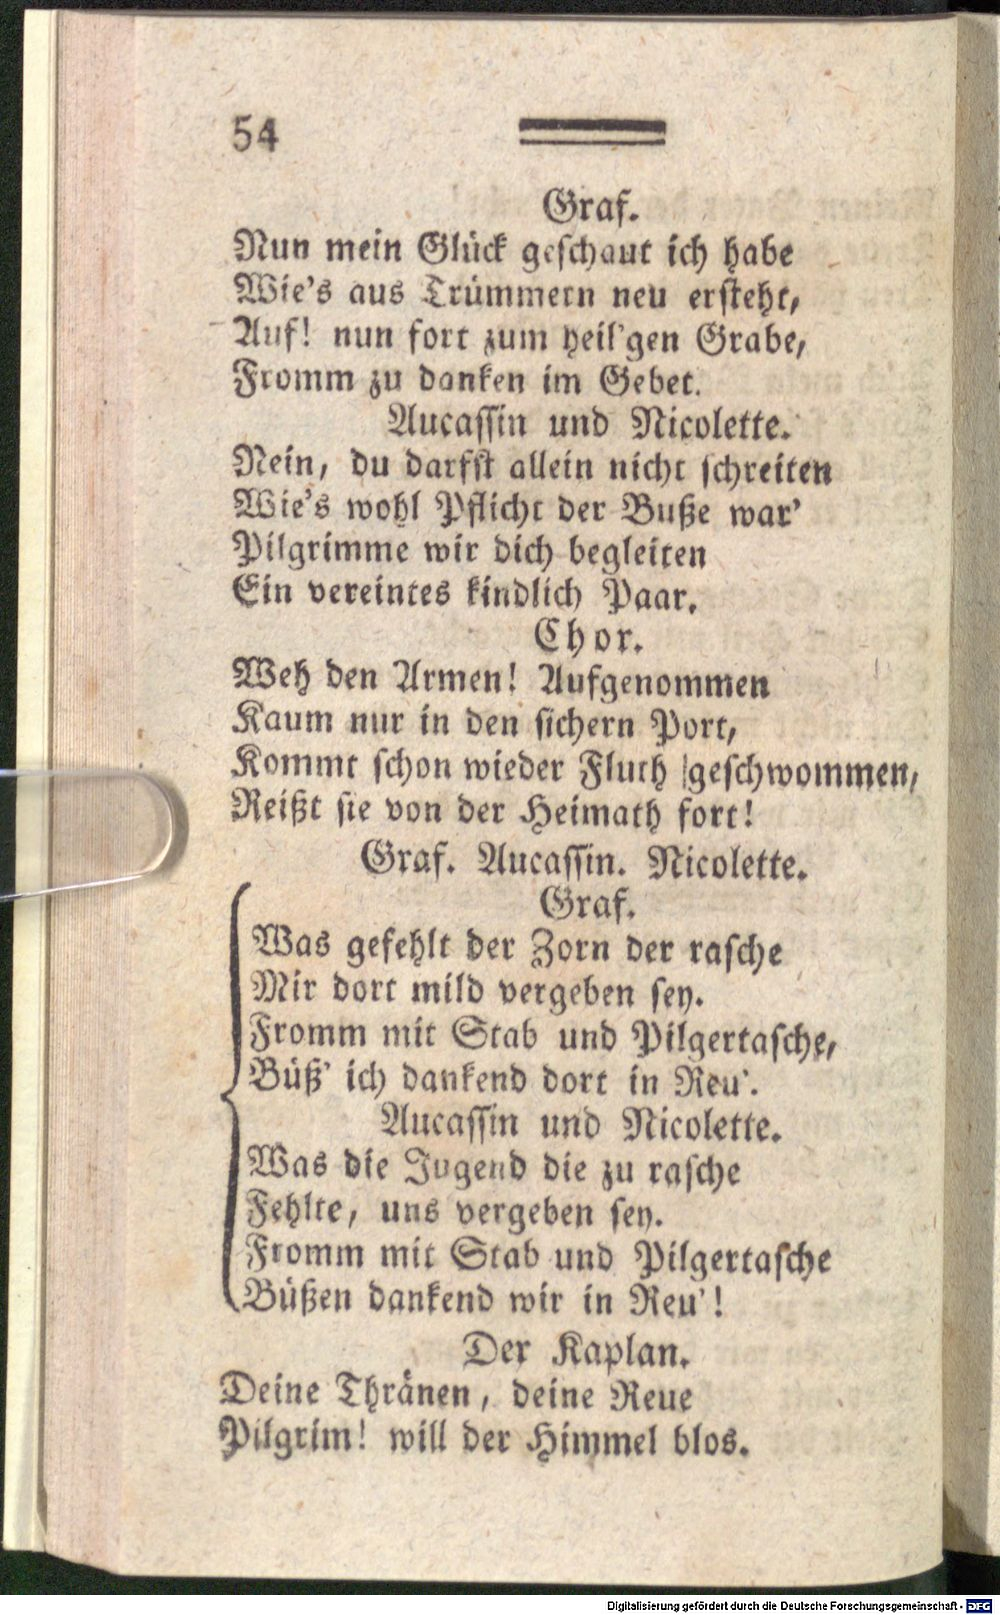 54
Graf.
Nun mein Glück geschaut ich habe
Wie's aus Trümmern neu ersteht,
Auf! nun fort zum heil'gen Grabe,
Fromm zu danken im Gebet.
Aucassin und Nicolette.
Nein, du darfst allein nicht schreiten
Wie's wohl Pflicht der Buße war'
Pilgrimme wir dich begleiten
Ein vereintes kindlich Paar.
Chor.
Weh den Armen! Aufgenommen
Kaum nur in den sichern Port,
Kommt schon wieder Fluth geschwommen,
Reißt sie von der Heimath fort!
Graf. Aucassin. Nicolette.
Graf.
Was gefehlt der Zorn der rasche
Mir dort mild vergeben sey.
Fromm mit Stab und Pilgertasche,
Büß' ich dankend dort in Reu'.
Aucassin und Nicolette.
Was die Jugend die zu rasche
Fehlte, uns vergeben sey.
Fromm mit Stab und Pilgertasche
Büßen dankend wir in Reu'!
Der Kaplan.
Deine Thränen, deine Reue
Pilgrim! will der Himmel blos.
Digitalisierung gefördert durch die Deutsche Forschungsgemeinschaft - DFG